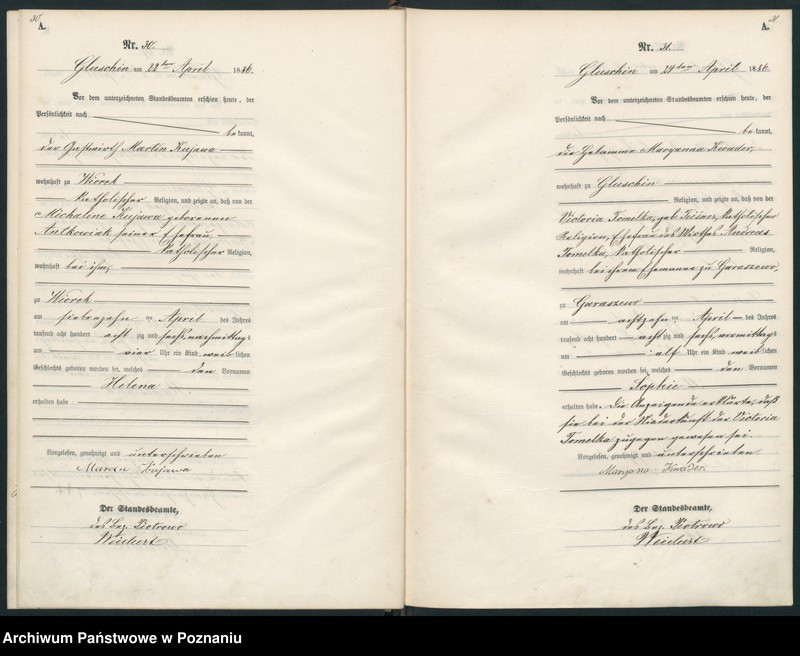 30.
A.
Nr. 30.
Gluschin am 22ten April 1886.
Vor dem unterzeichneten Standesbeamten erschien heute, der
Persönlichkeit nach
bekannt,
der Gastwirth Martin Kujawa
wohnhaft zu Wiorek
katholischer Religion, und zeigte an, daß von der
Michaline Kujawa geborenen
Antkowiak seiner Ehefrau
katholischer Religion,
wohnhaft bei ihm,
zu Wiorek
am siebenzehn ten April des Jahres
tausend acht hundert achtzig und sechs, nachmittags
um vier Uhr ein Kind weiblichen
Geschlechts geboren worden sei, welches den Vornamen
Helena
erhalten habe
Vorgelesen, genehmigt und unterschrieben
Marcin Kujawa
Der Standesbeamte,
des Bez. Piotrowo
Weichert
31.
A.
Nr. 31.
Gluschin am 24ten April 1886.
Vor dem unterzeichneten Standesbeamten erschien heute, der
Persönlichkeit nach
bekannt,
die Hebamme Maryanna
wohnhaft zu Gluschin
Religion, und zeigte an, daß von der
Victoria Tomelka, geb. katholischer
Religion, Ehefrau des Wirthes Andreas
Tomelka, katholischer Religion,
wohnhaft bei ihrem Ehemanne zu Garaszewo,
zu Garaszewo
am achtzehn ten April des Jahres
tausend acht hundert achtzig und sechs, vormittags
um elf Uhr ein Kind weiblichen
Geschlechts geboren worden sei, welches den Vornamen
Sophie
erhalten habe. Die Anzeigende erklärte, daß
sie bei der Niederkunft der Victoria
Tomelka zugegen gewesen sei.
Vorgelesen, genehmigt und unterschrieben.
Maryana
Der Standesbeamte,
des Bez. Piotrowo
Weichert
Archiwum Państwowe w Poznaniu